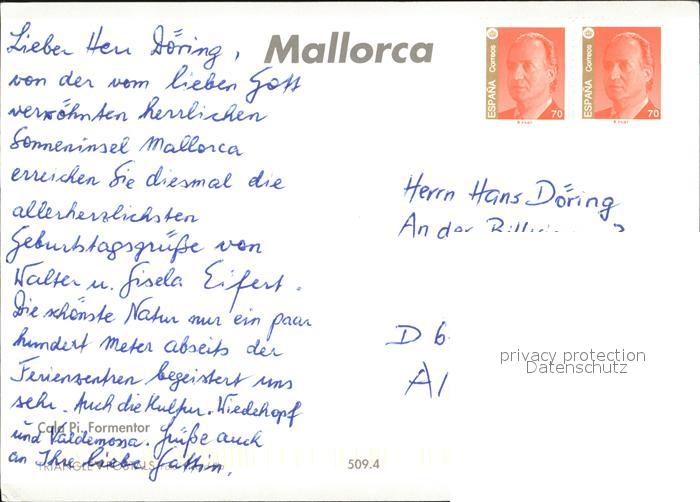 Mallorca
Lieber Herr Döring,
von der vom lieben Gott
verwöhnten herrlichen
Sonneninsel Mallorca
erreichen Sie diesmal die
allerherzlichsten
Geburtstagsgrüße von
Walter u. Gisela Eifert.
Die schönste Natur nur ein paar
hundert Meter abseits der
Ferienzentren begeistert uns
sehr. Auch die Kultur. Wiedehopf
und Valdemossa. Grüße auch
an Ihre liebe Gattin.
Cala Pi. Formentor
TRIANGLE POSTALS
509.4
ESPAÑA Correos
70
ESPAÑA Correos
70
Herrn Hans Döring
An der
D 6
Al
privacy protection
Datenschutz